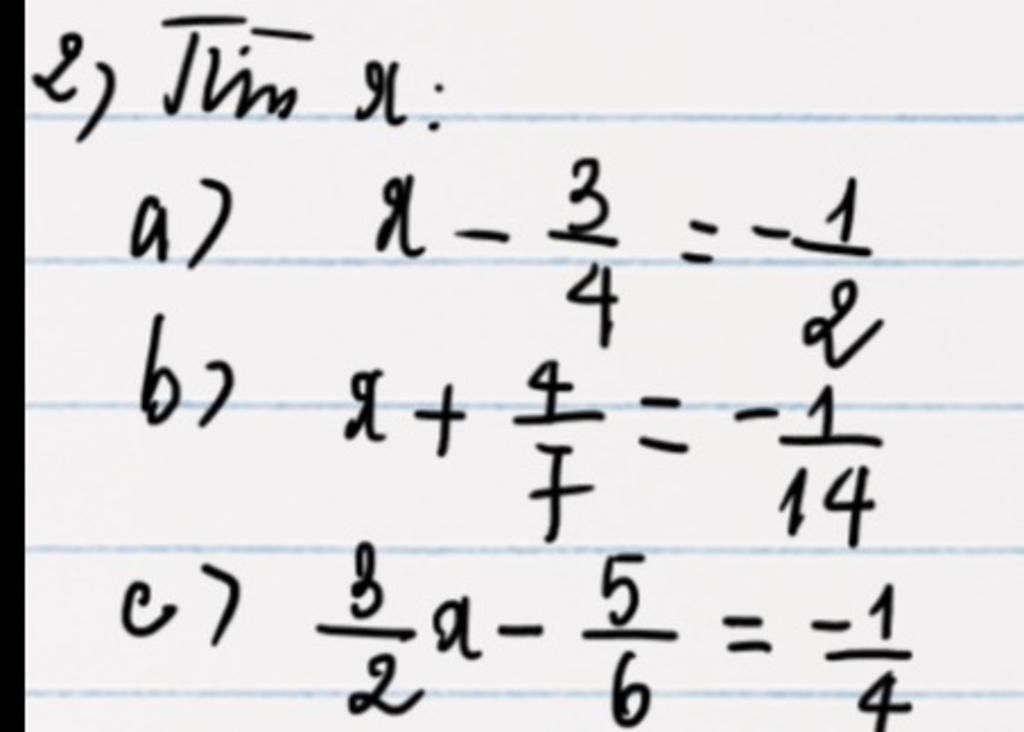 2) Tìm x:
a) x - 3/4 = -1/2
b) x + 4/7 = -1/14
c) 3/2 x - 5/6 = -1/4